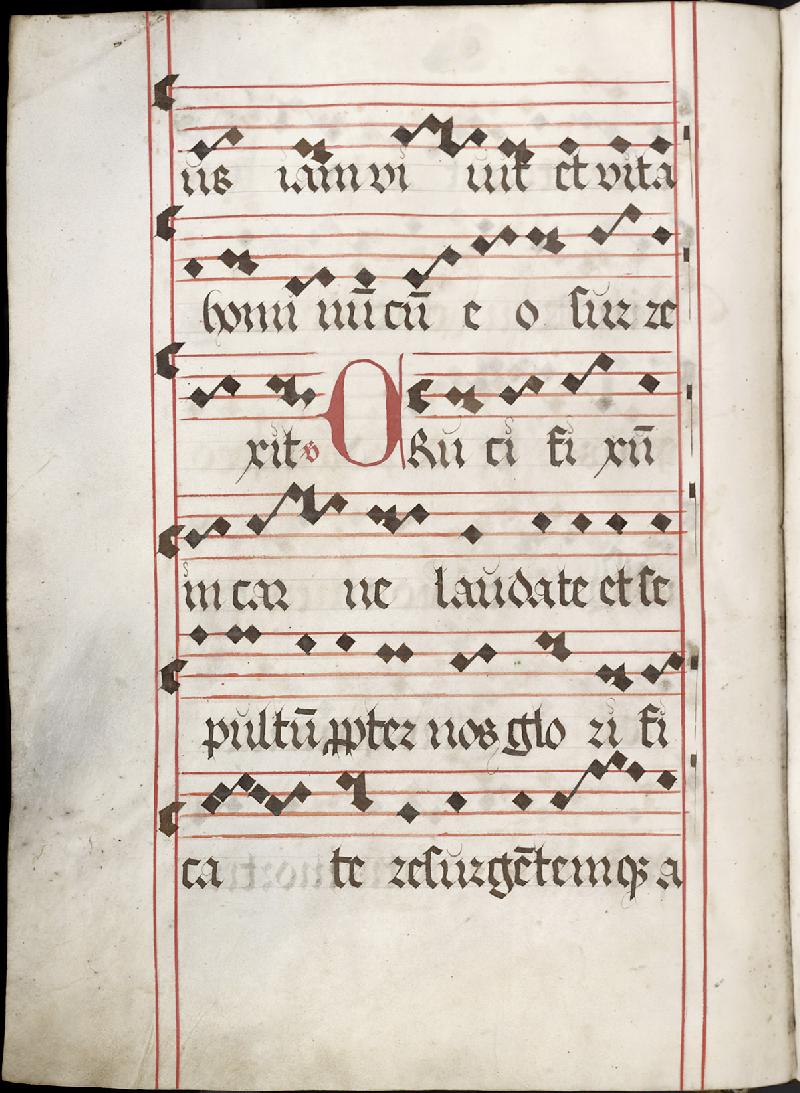 us iam vi uit et vita
homi nū cū e o sur re
xit ꝟ CRu ci fi xū
in car ne laudate et se
pultū ꝓpter nos glo ri fi
ca te resurgētemqꝫ a